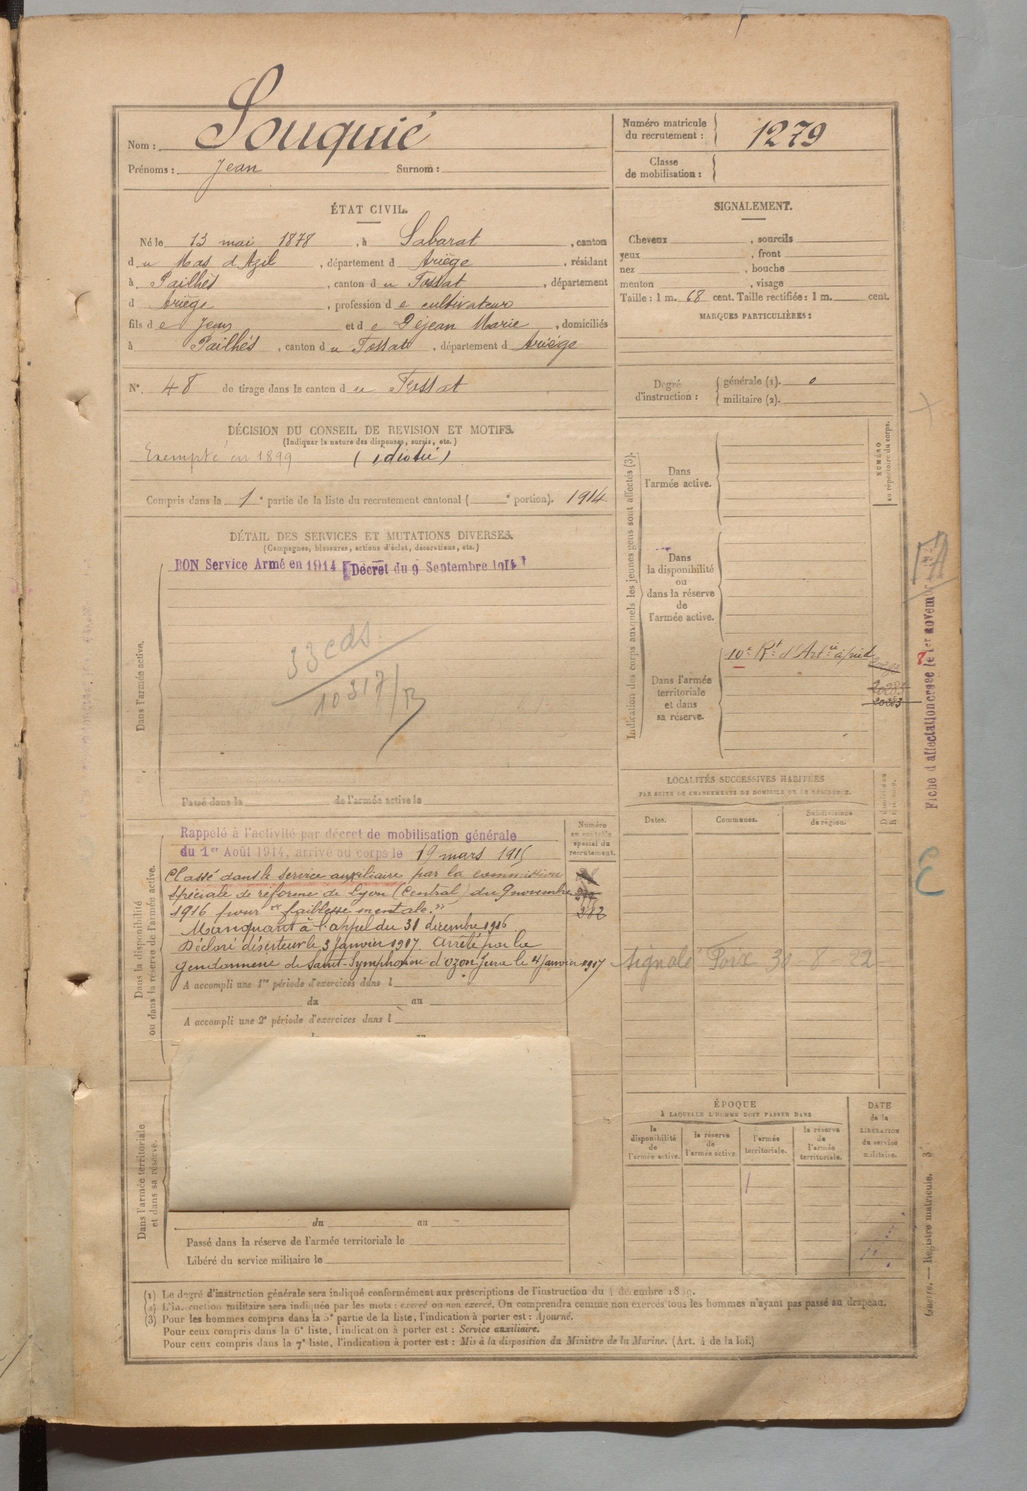 Nom : Souquié
Prénoms : Jean Surnom :
Numéro matricule du recrutement : 1279
Classe de mobilisation :
ÉTAT CIVIL.
Né le 13 mai 1878, à Sabarat, canton
du Mas d'Azil, département d Ariège, résidant
à Pailhès, canton du Fossat, département
d Ariège, profession de cultivateur
fils de Jean et de Déjean Marie, domiciliés
à Pailhès, canton du Fossat, département d Ariège
N° 48 de tirage dans le canton du Fossat
SIGNALEMENT.
Cheveux , sourcils
yeux , front
nez , bouche
menton , visage
Taille : 1 m. 68 cent. Taille rectifiée : 1 m. cent.
MARQUES PARTICULIÈRES :
Degré d'instruction : générale (1). 0
militaire (2).
DÉCISION DU CONSEIL DE REVISION ET MOTIFS.
(Indiquer la nature des dispenses, sursis, etc.)
Exempté en 1899 (idiotie)
Compris dans la 1e partie de la liste du recrutement cantonal ( e portion). 1914
DÉTAIL DES SERVICES ET MUTATIONS DIVERSES.
(Campagnes, blessures, actions d'éclat, décorations, etc.)
BON Service Armé en 1914 [Décret du 9 Septembre 1914]
Dans l'armée active.
10317/B
Passé dans la de l'armée active le
Indication des corps auxquels les jeunes gens sont affectés (3).
NUMÉRO au répertoire du corps.
Dans l'armée active.
Dans la disponibilité ou dans la réserve de l'armée active.
Dans l'armée territoriale et dans sa réserve.
10e Rt d'Artie à pied
20283
Fiche d'affectation créée le 1er novem
LOCALITÉS SUCCESSIVES HABITÉES
PAR SUITE DE CHANGEMENTS DE DOMICILE OU DE RÉSIDENCE.
Dates. Communes. Subdivisions de région.
Signalé Foix 30-8-22
Dans la disponibilité ou dans la réserve de l'armée active.
Numéro au contrôle spécial du recrutement.
Rappelé à l'activité par décret de mobilisation générale
du 1er Août 1914, arrivé au corps le 19 mars 1915
Classé dans le service auxiliaire par la commission
spéciale de réforme de Lyon (Central) du 9 novembre
1916 pour "faiblesse mentale."
Manquant à l'appel du 31 décembre 1916
Déclaré déserteur le 3 janvier 1917. Arrêté par la
gendarmerie de Saint-Symphorien d'Ozon Isère le 4 janvier 1917
A accompli une 1re période d'exercices dans l
du au
A accompli une 2e période d'exercices dans l
Dans l'armée territoriale et dans sa réserve.
du au
Passé dans la réserve de l'armée territoriale le
Libéré du service militaire le
ÉPOQUE
À LAQUELLE L'HOMME DOIT PASSER DANS
la disponibilité de l'armée active
la réserve de l'armée active
l'armée territoriale.
la réserve de l'armée territoriale.
DATE de la LIBÉRATION du service militaire.
Guerre. — Registre matricule.
(1) Le degré d'instruction générale sera indiqué conformément aux prescriptions de l'instruction du 4 décembre 1889.
(2) L'instruction militaire sera indiquée par les mots : exercé ou non exercé. On comprendra comme non exercés tous les hommes n'ayant pas passé au drapeau.
(3) Pour les hommes compris dans la 5e partie de la liste, l'indication à porter est : Ajourné.
Pour ceux compris dans la 6e liste, l'indication à porter est : Service auxiliaire.
Pour ceux compris dans la 7e liste, l'indication à porter est : Mis à la disposition du Ministre de la Marine. (Art. 4 de la loi.)